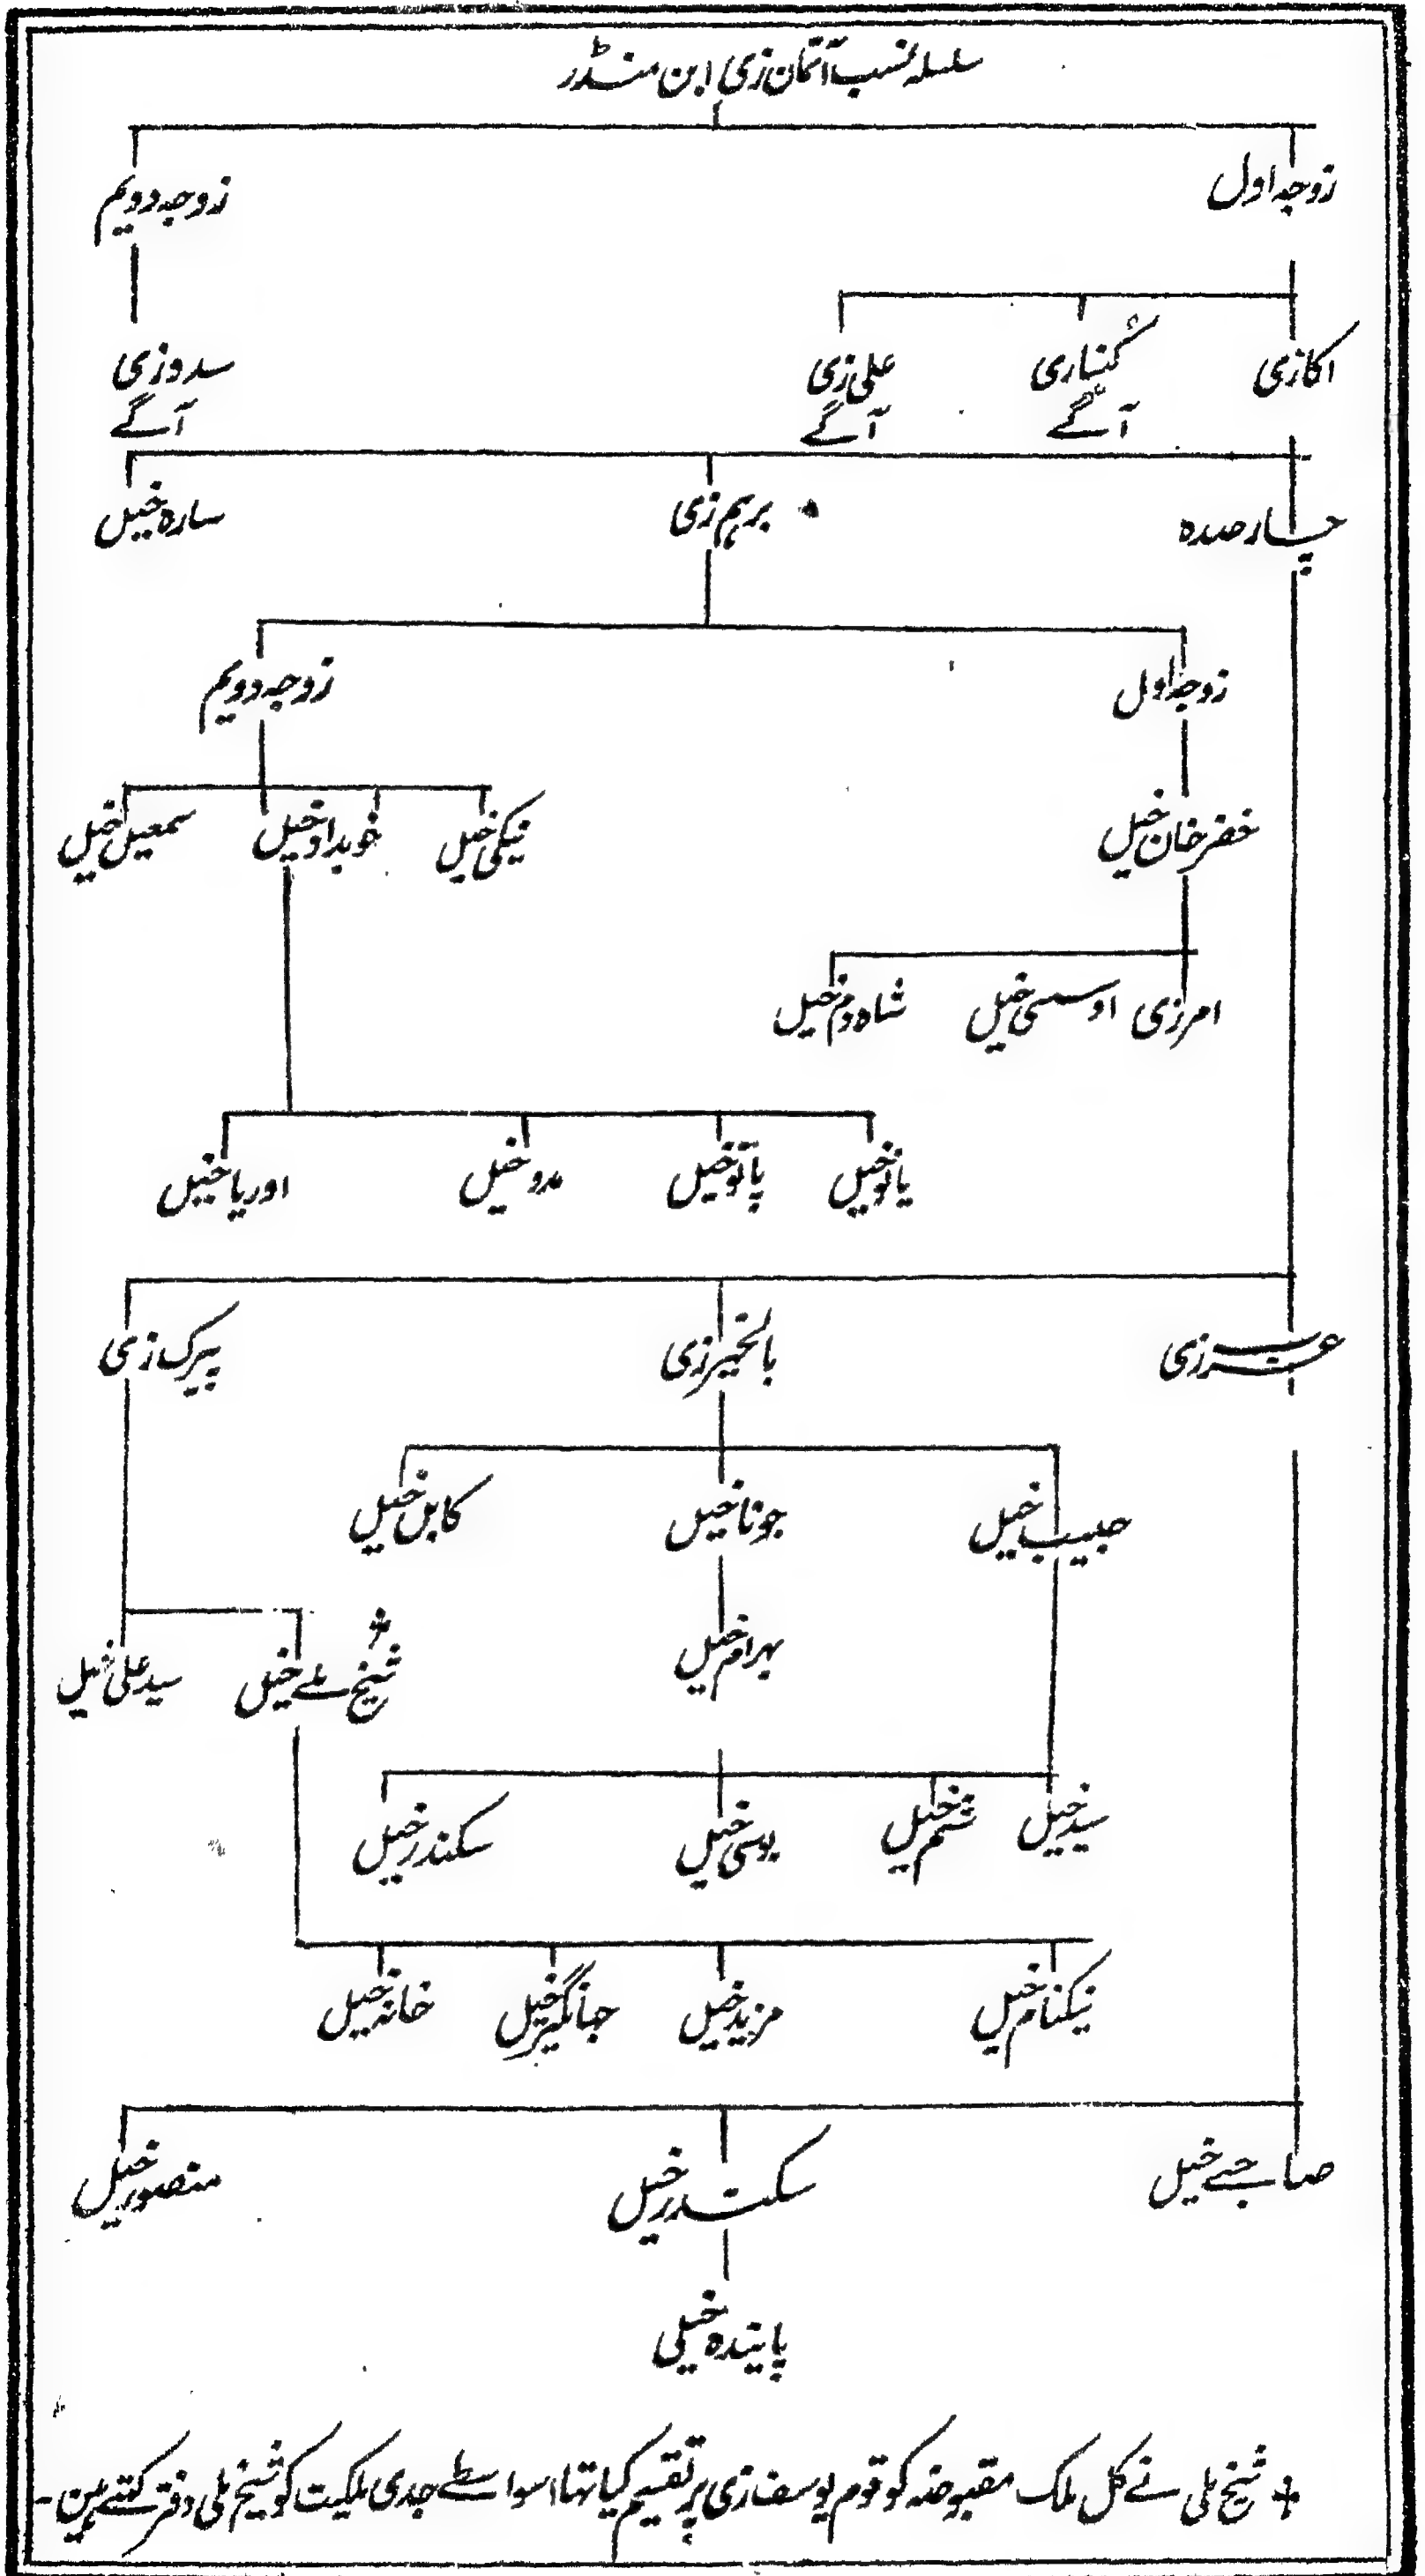 سلسلہ نسب آتمان زی ابن منڈر
زوجہ اول
زوجہ دویم
اکازی
کناری
علی زی
سدوزی
آگے
آگے
آگے
چار صدہ
برہم زی
سارہ خیل
زوجہ اول
زوجہ دویم
خضر خان خیل
نیکی خیل
خویداد خیل
سمعیل خیل
امرزی
اوسی خیل
شاہ دم خیل
یانو خیل
پاتو خیل
مدو خیل
اوریا خیل
عزرزی
بالخیر زی
پیرک زی
حبیب خیل
جونا خیل
کابل خیل
بہرام خیل
شیخ ملے خیل
سید علی خیل
سید خیل
شم خیل
یوسی خیل
سکندر خیل
نیکنام خیل
مزید خیل
جہانگیر خیل
خانہ خیل
صاحبے خیل
سکندر خیل
منصور خیل
پایندہ خیلی
شیخ ملی نے کل ملک مقبوضہ کو قوم یوسف زی پر تقسیم کیا تھا اسواسطے جدی ملکیت کو شیخ ملی دفتر کہتے ہین -